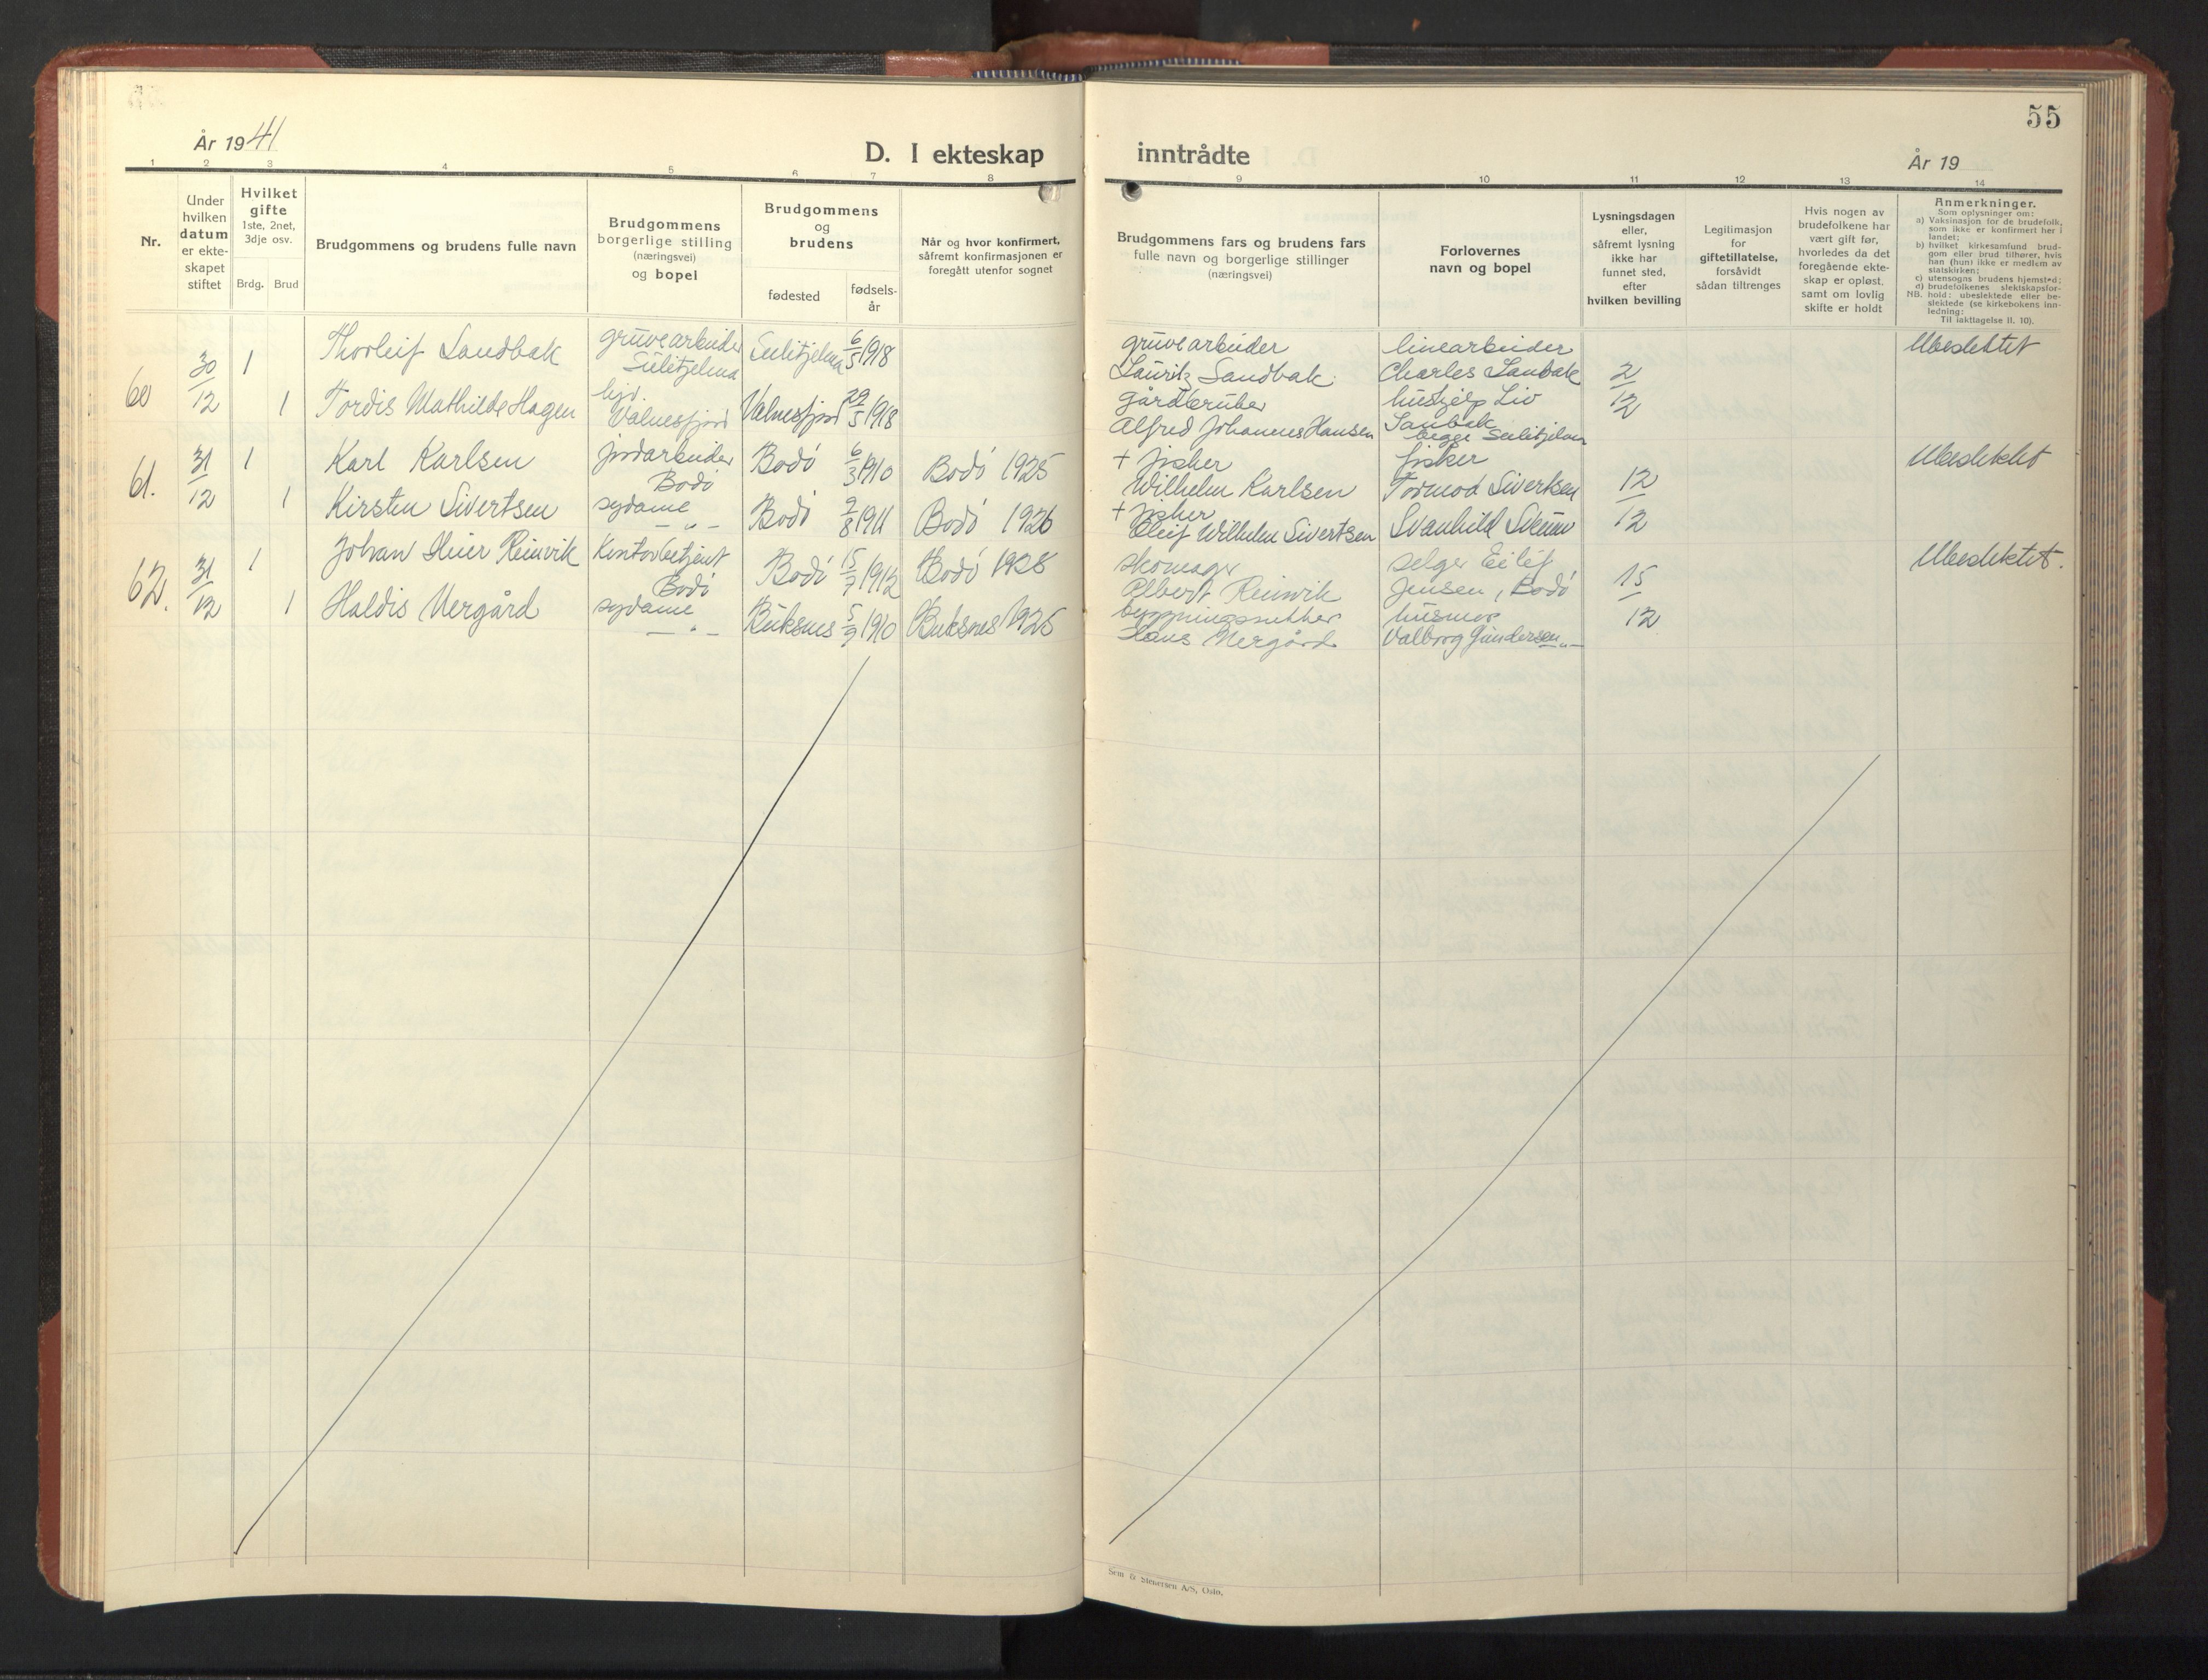 55
År 1941
D. I ekteskap
inntrådte
År 19
1 2 3 4 5 6 7 8
9 10 11 12 13 14
Nr.
Under
hvilken
datum
er ekte-
skapet
stiftet
Hvilket
gifte
1ste, 2net,
3dje osv.
Brdg. Brud
Brudgommens og brudens fulle navn
Brudgommens
borgerlige stilling
(næringsvei)
og bopel
Brudgommens
og
brudens
fødested
fødsels-
år
Når og hvor konfirmert,
såfremt konfirmasjonen er
foregått utenfor sognet
Brudgommens fars og brudens fars
fulle navn og borgerlige stillinger
(næringsvei)
Forlovernes
navn og bopel
Lysningsdagen
eller,
såfremt lysning
ikke har
funnet sted,
efter
hvilken bevilling
Legitimasjon
for
giftetillatelse,
forsåvidt
sådan tiltrenges
Hvis nogen av
brudefolkene har
vært gift før,
hvorledes da det
foregående ekte-
skap er opløst,
samt om lovlig
skifte er holdt
Anmerkninger.
Som oplysninger om:
a) Vaksinasjon for de brudefolk,
som ikke er konfirmert her i
landet;
b) hvilket kirkesamfund brud-
gom eller brud tilhører, hvis
han (hun) ikke er medlem av
statskirken;
c) utensogns brudens hjemsted;
d) brudefolkenes slektskapsfor-
NB. hold: ubeslektede eller be-
slektede (se kirkebokens inn-
ledning:
Til iakttagelse II. 10).
60
30/12
1
Thorleif Sandbak
gruvearbeider
Sulitjelma
Sulitjelma
6/5 1918
gruvearbeider
Lauritz Sandbak
linearbeider
Charles Sanbak
2/12
Ubeslektet
1
Tordis Mathilde Hagen
Valnesfjord
Valnesfjord
29/5 1918
gårdbruker
Alfred Johannes Hansen
hushjelp Liv
Sanbak
begge Sulitjelma
61.
31/12
1
Karl Karlsen
jordarbeider
Bodö
Bodö
6/3 1910
Bodö 1925
+ fisker
Wilhelm Karlsen
fisker
Tormod Sivertsen
12/12
Ubeslektet
1
Kirsten Sivertsen
sydame
— „ —
Bodö
2/8 1911
Bodö 1926
+ fisker
Oleif Wilhelm Sivertsen
Svanhild
62.
31/12
1
Johan Heier Reinvik
Kontorbetjent
Bodö
Bodö
15/7 1912
Bodö 1928
skomager
Albert Reinvik
selger Eilif
Jensen, Bodö
15/12
Ubeslektet.
1
Haldis Nergård
sydame
— „ —
Buksnes
5/9 1910
Buksnes 1925
Hans Nergård
husmor
Valborg Gundersen — „ —
Sem & Stenersen A/S, Oslo.